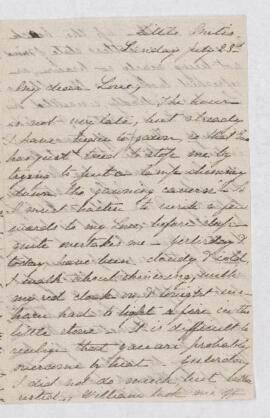 Sunday July 23d
My dear Love,
The hour
is not very late, but already
I have begun to yawn, so that Eva
has just tried to stop me by
trying to put a lamp chimney
down the yawning cavern. So
I must hasten to write a few
words to my Love, before sleep
quite overtakes me – yesterday &
today have been cloudy & cold,
I walk about shivering, with
my red cloak on & tonight we
have had to light a fire in the
little stove – It is difficult to
realize that you are probably
overcome by heat. Yesterday
I did not do much but
William took me off